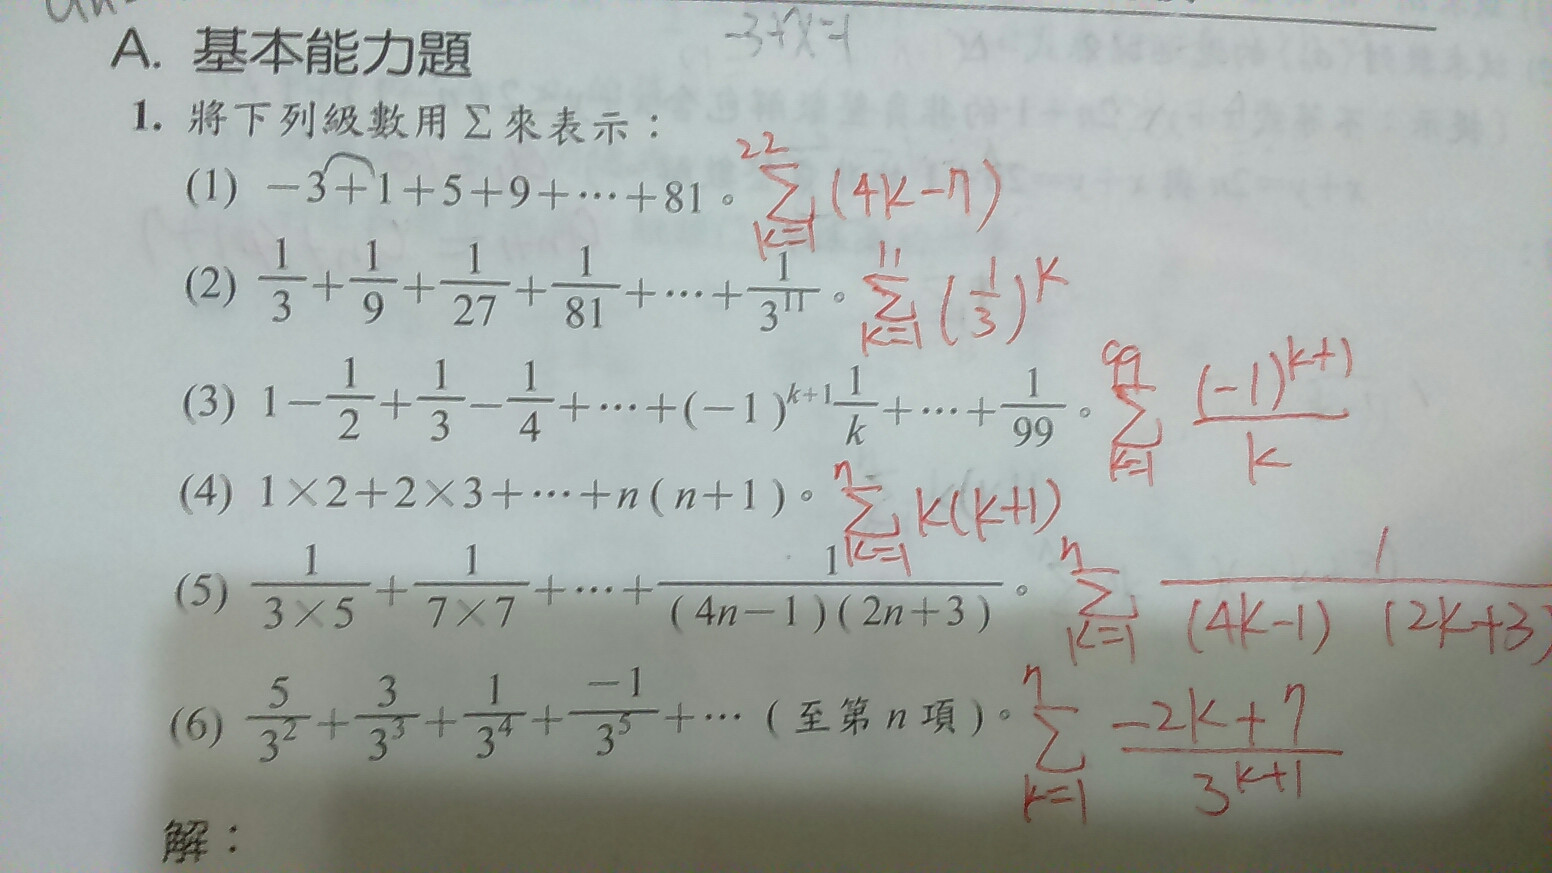 -3+x=1
A. 基本能力題
1. 將下列級數用 Σ 來表示：
(1) −3+1+5+9+⋯+81。 \sum_{k=1}^{22} (4k-7)
(2) \frac{1}{3}+\frac{1}{9}+\frac{1}{27}+\frac{1}{81}+⋯+\frac{1}{3^{11}}。 \sum_{k=1}^{11} (\frac{1}{3})^k
(3) 1−\frac{1}{2}+\frac{1}{3}−\frac{1}{4}+⋯+(−1)^{k+1}\frac{1}{k}+⋯+\frac{1}{99}。 \sum_{k=1}^{99} \frac{(-1)^{k+1}}{k}
(4) 1×2+2×3+⋯+n(n+1)。 \sum_{k=1}^{n} k(k+1)
(5) \frac{1}{3×5}+\frac{1}{7×7}+⋯+\frac{1}{(4n−1)(2n+3)}。 \sum_{k=1}^{n} \frac{1}{(4k-1)(2k+3)}
(6) \frac{5}{3^2}+\frac{3}{3^3}+\frac{1}{3^4}+\frac{−1}{3^5}+⋯（至第 n 項）。 \sum_{k=1}^{n} \frac{-2k+7}{3^{k+1}}
解：